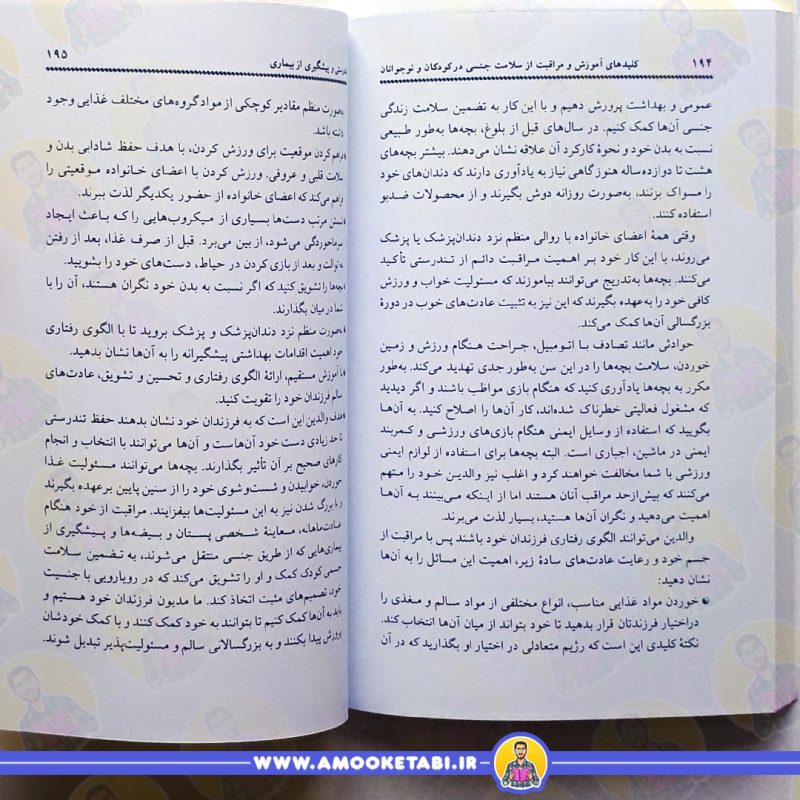 ۱۹۴ کلیدهای آموزش و مراقبت از سلامت جنسی در کودکان و نوجوانان
عمومی و بهداشت پرورش دهیم و با این کار به تضمین سلامت زندگی
جنسی آن‌ها کمک کنیم. در سال‌های قبل از بلوغ، بچه‌ها به‌طور طبیعی
نسبت به بدن خود و نحوهٔ کارکرد آن علاقه نشان می‌دهند. بیشتر بچه‌های
هشت تا دوازده‌ساله هنوز گاهی نیاز به یادآوری دارند که دندان‌های خود
را مسواک بزنند، به‌صورت روزانه دوش بگیرند و از محصولات ضدبو
استفاده کنند.
وقتی همهٔ اعضای خانواده با روالی منظم نزد دندان‌پزشک یا پزشک
می‌روند، با این کار خود بر اهمیت مراقبت دائم از تندرستی تأکید
می‌کنند. بچه‌ها به‌تدریج می‌توانند بیاموزند که مسئولیت خواب و ورزش
کافی خود را به‌عهده بگیرند که این نیز به تثبیت عادت‌های خوب در دورهٔ
بزرگسالی آن‌ها کمک می‌کند.
حوادثی مانند تصادف با اتومبیل، جراحت هنگام ورزش و زمین
خوردن، سلامت بچه‌ها را در این سن به‌طور جدی تهدید می‌کند. به‌طور
مکرر به بچه‌ها یادآوری کنید که هنگام بازی مواظب باشند و اگر دیدید
که مشغول فعالیتی خطرناک شده‌اند، کار آن‌ها را اصلاح کنید. به آن‌ها
بگویید که استفاده از وسایل ایمنی هنگام بازی‌های ورزشی و کمربند
ایمنی در ماشین، اجباری است. البته بچه‌ها برای استفاده از لوازم ایمنی
ورزشی با شما مخالفت خواهند کرد و اغلب نیز والدین خود را متهم
می‌کنند که بیش‌ازحد مراقب آنان هستند اما از اینکه می‌بینند به آن‌ها
اهمیت می‌دهید و نگران آن‌ها هستید، بسیار لذت می‌برند.
والدین می‌توانند الگوی رفتاری فرزندان خود باشند پس با مراقبت از
جسم خود و رعایت عادت‌های سادهٔ زیر، اهمیت این مسائل را به آن‌ها
نشان دهید:
• خوردن مواد غذایی مناسب، انواع مختلفی از مواد سالم و مغذی را
دراختیار فرزندتان قرار بدهید تا خود بتواند از میان آن‌ها انتخاب کند.
نکتهٔ کلیدی این است که رژیم متعادلی در اختیار او بگذارید که در آن
و پیشگیری از بیماری ۱۹۵
به‌صورت منظم مقادیر کوچکی از مواد گروه‌های مختلف غذایی وجود
باشد.
کردن موقعیت برای ورزش کردن، با هدف حفظ شادابی بدن و
قلبی و عروقی. ورزش کردن با اعضای خانواده موقعیتی را
می‌کند که اعضای خانواده از حضور یکدیگر لذت ببرند.
مرتب دست‌ها بسیاری از میکروب‌هایی را که باعث ایجاد
سرماخوردگی می‌شود، از بین می‌برد. قبل از صرف غذا، بعد از رفتن
توالت و بعد از بازی کردن در حیاط، دست‌های خود را بشویید.
بچه‌ها را تشویق کنید که اگر نسبت به بدن خود نگران هستند، آن را با
شما در میان بگذارند.
به‌صورت منظم نزد دندان‌پزشک و پزشک بروید تا با الگوی رفتاری
خود اهمیت اقدامات بهداشتی پیشگیرانه را به آن‌ها نشان بدهید.
با آموزش مستقیم، ارائهٔ الگوی رفتاری و تحسین و تشویق، عادت‌های
سالم فرزندان خود را تقویت کنید.
هدف والدین این است که به فرزندان خود نشان بدهند حفظ تندرستی
تا حد زیادی دست خود آن‌هاست و آن‌ها می‌توانند با انتخاب و انجام
کارهای صحیح بر آن تأثیر بگذارند. بچه‌ها می‌توانند مسئولیت غذا
خوردن، خوابیدن و شست‌وشوی خود را از سنین پایین برعهده بگیرند
و با بزرگ شدن نیز به این مسئولیت‌ها بیفزایند. مراقبت از خود هنگام
عادت ماهانه، معاینهٔ شخصی پستان و بیضه‌ها و پیشگیری از
بیماری‌هایی که از طریق جنسی منتقل می‌شوند، به تضمین سلامت
جسمی کودک کمک و او را تشویق می‌کند که در رویارویی با جنسیت
خود، تصمیم‌های مثبت اتخاذ کند. ما مدیون فرزندان خود هستیم و
باید به آن‌ها کمک کنیم تا بتوانند به خود کمک کنند و با کمک خودشان
پرورش پیدا بکنند و به بزرگسالانی سالم و مسئولیت‌پذیر تبدیل شوند.
WWW.AMOOKETABI.IR